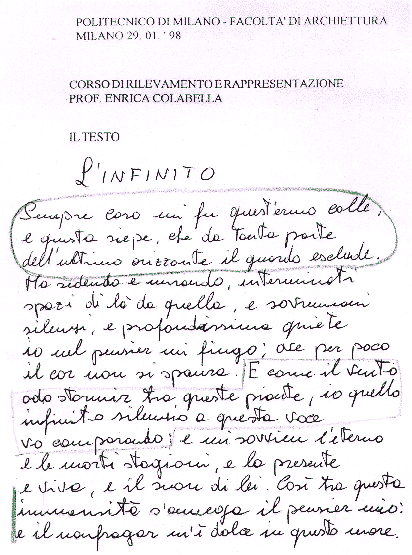 POLITECNICO DI MILANO - FACOLTA' DI ARCHIETTURA
MILANO 29. 01. ' 98
CORSO DI RILEVAMENTO E RAPPRESENTAZIONE
PROF. ENRICA COLABELLA
IL TESTO
L'INFINITO
Sempre caro mi fu quest'ermo colle,
e questa siepe, che da tanta parte
dell'ultimo orizzonte il guardo esclude.
Ma sedendo e mirando, interminati
spazi di là da quella, e sovrumani
silenzi, e profondissima quiete
io nel pensier mi fingo; ove per poco
il cor non si spaura. E come il vento
odo stormir tra queste piante, io quello
infinito silenzio a questa voce
vo comparando: e mi sovvien l'eterno
e le morti stagioni, e la presente
e viva, e il suon di lei. Così tra questa
immensità s'annega il pensier mio:
e il naufragar m'è dolce in questo mare.